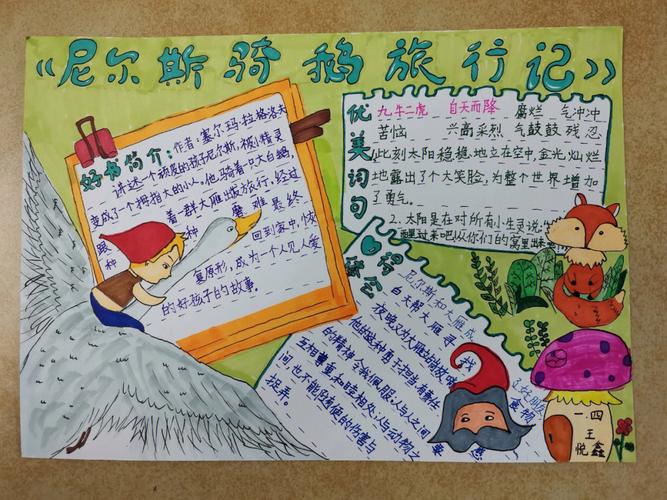 《尼尔斯骑鹅旅行记》
好书简介:作者:塞尔玛·拉格洛夫
讲述一个顽皮的孩子尼尔斯,被小精灵
变成了一个拇指大的小人。他骑着一只大白鹅,
跟着一群大雁出发旅行,经过
种种磨难是终
回到家中,恢
复原形,成为一个人见人爱
的好孩子的故事。
优美词句
九牛二虎 自天而降 腐烂 气冲冲
苦恼 兴高采烈 气鼓鼓 残忍
1、此刻太阳稳稳地立在空中,金光灿烂
地露出了个大笑脸,为整个世界增加
了勇气。
2、太阳是在对所有小生灵说
醒过来吧从你们的窝里出来
心得
体会
尼尔斯和大雁成
白天帮大雁寻找
夜晚又
他的这种勇于担当有
的精神令我佩服:人与人之间要
互相尊重和睦相处:人与动物之
间,也不能
捉弄。
一四
王
悦鑫